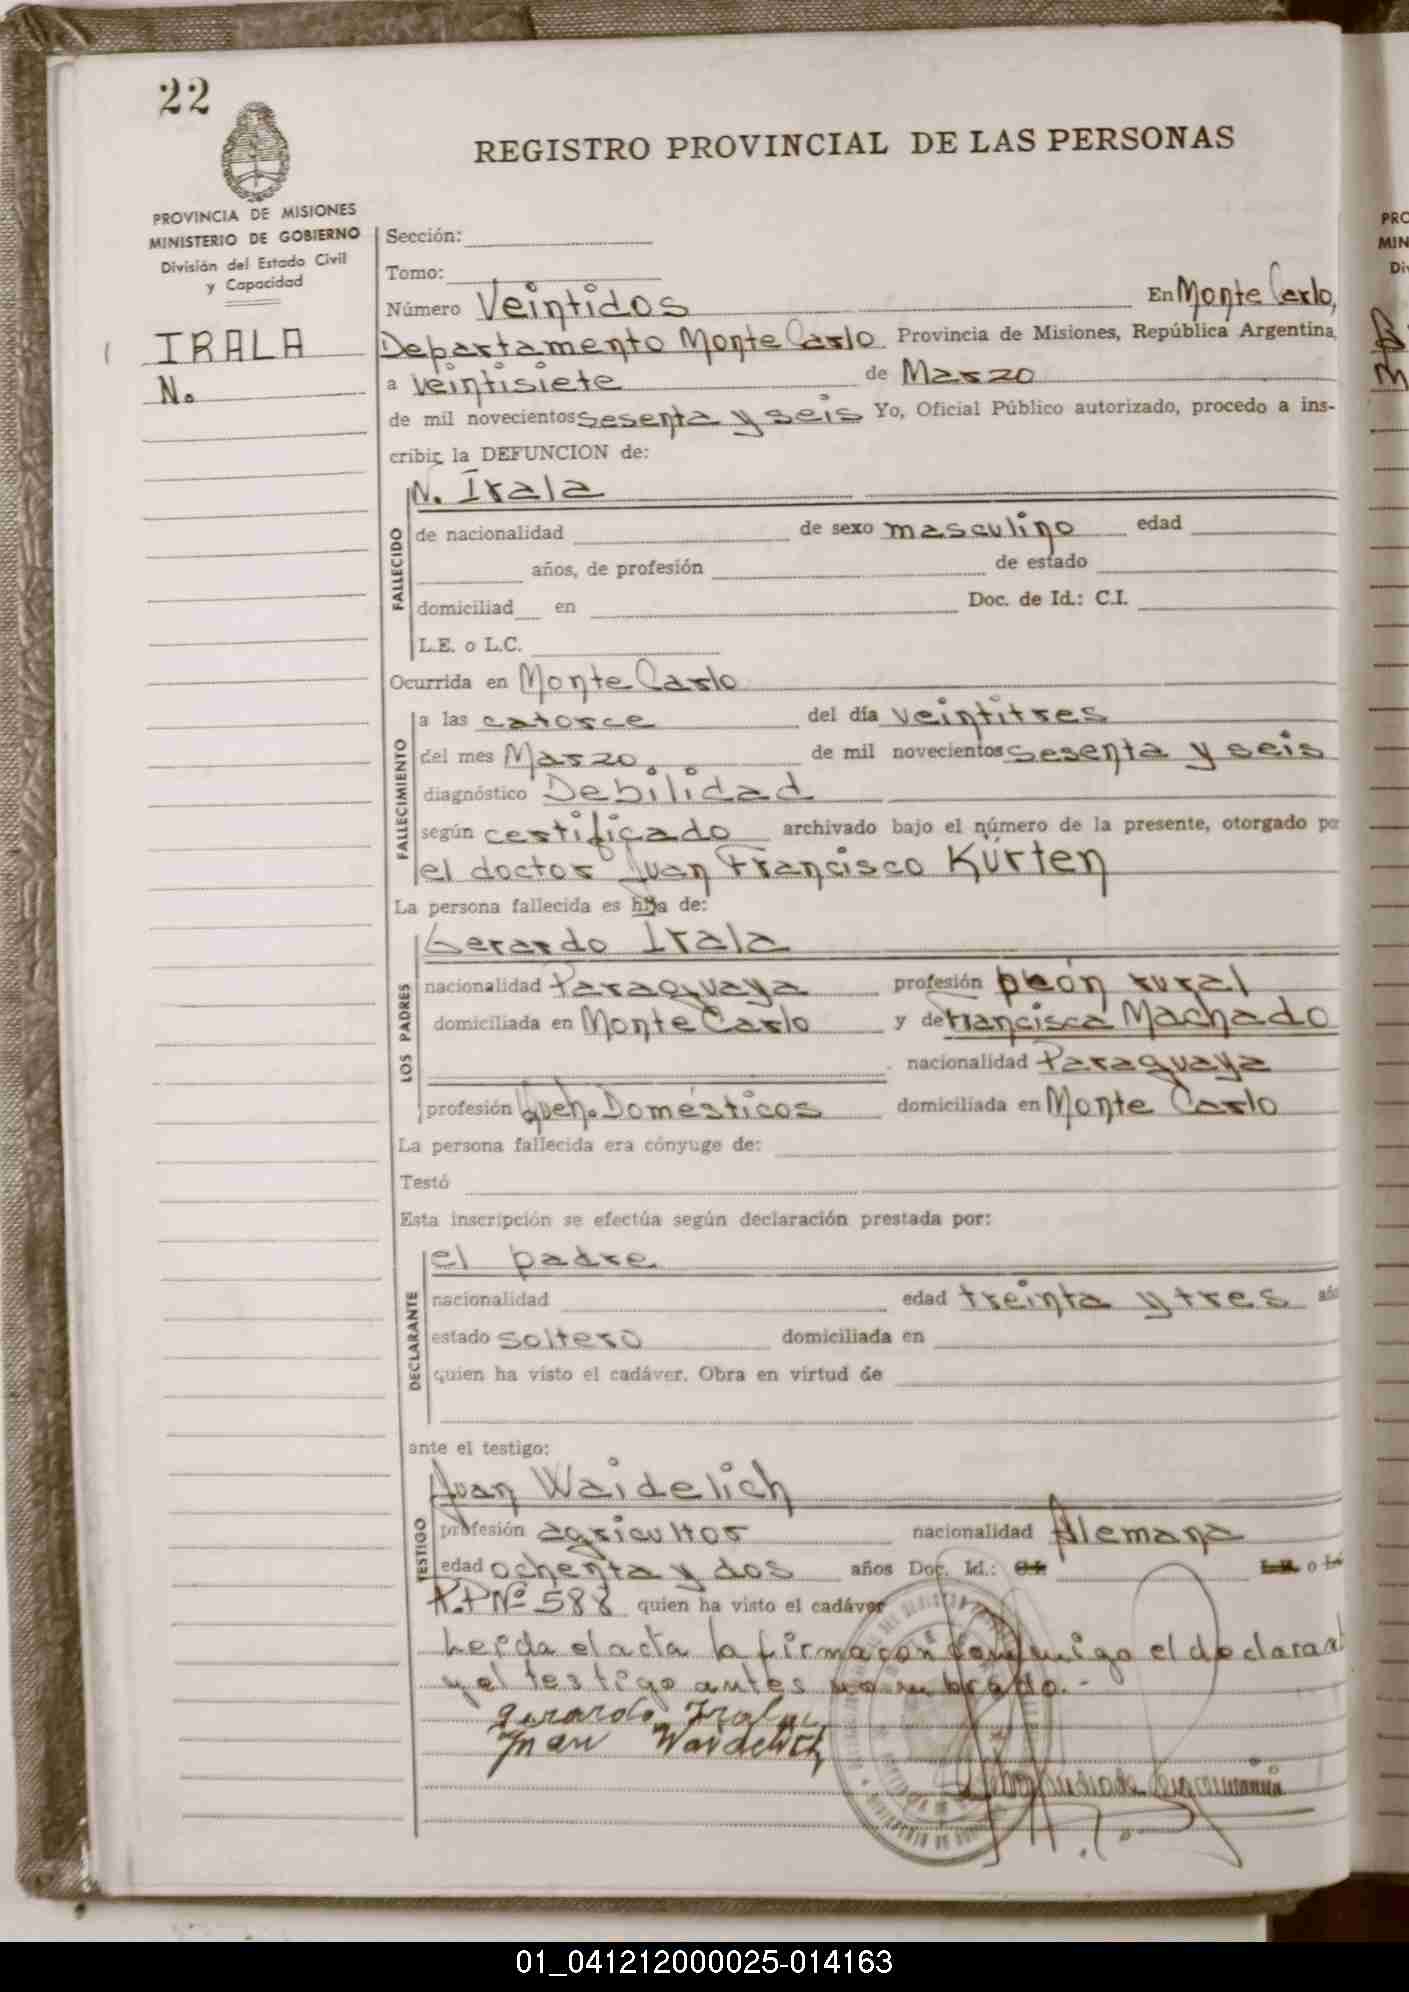 22
REGISTRO PROVINCIAL DE LAS PERSONAS
PROVINCIA DE MISIONES
MINISTERIO DE GOBIERNO
División del Estado Civil
y Capacidad
IRALA
N.
Sección:
Tomo:
Número Veintidos En Monte Carlo,
Departamento Monte Carlo Provincia de Misiones, República Argentina,
a veintisiete de Marzo
de mil novecientos sesenta y seis Yo, Oficial Público autorizado, procedo a ins-
cribir la DEFUNCION de:
N. Irala
FALLECIDO
de nacionalidad de sexo masculino edad
años, de profesión de estado
domiciliad en Doc. de Id.: C.I.
L.E. o L.C.
Ocurrida en Monte Carlo
FALLECIMIENTO
a las catorce del día veintitres
del mes Marzo de mil novecientos sesenta y seis
diagnóstico Debilidad
según certificado archivado bajo el número de la presente, otorgado po
el doctor Juan Francisco Kürten
La persona fallecida es hija de:
LOS PADRES
Gerardo Irala
nacionalidad Paraguaya profesión peón rural
domiciliada en Monte Carlo y de Francisca Machado
nacionalidad Paraguaya
profesión Queh. Domésticos domiciliada en Monte Carlo
La persona fallecida era cónyuge de:
Testó
Esta inscripción se efectúa según declaración prestada por:
DECLARANTE
el padre
nacionalidad edad treinta y tres año
estado soltero domiciliada en
quien ha visto el cadáver. Obra en virtud de
ante el testigo:
TESTIGO
Juan Waidelich
profesión agricultor nacionalidad Alemana
edad ochenta y dos años Doc. Id.: o
Nº 588 quien ha visto el cadáver
Leida el acta la firma con conmigo el declarant
y el testigo antes nombrado.-
gerardo Irala
Juan Waidelich
01_041212000025-014163